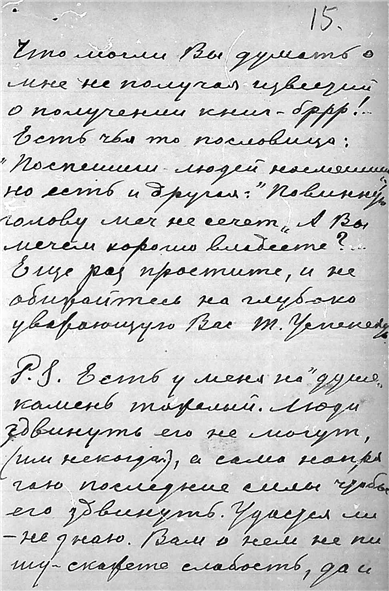 15.
Что могли Вы думать о
мне не получая известий
о получении книг – бррр!..
Есть чья то пословица:
"Поспешишь – людей насмешишь
но есть и другая: "Повинную
голову меч не сечет„ А Вы
мечем хорошо владеете?..
Еще раз простите, и не
обижайтесь на глубоко
уважающую Вас Т.
P.S. Есть у меня на "душе"
камень тяжелый. Люди
сдвинуть его не могут,
(им некогда), а сама напря
гаю последние силы чтобы
его сдвинуть. Удастся ли
– не знаю. Вам о нем не пи
шу – скажете слабость, да и